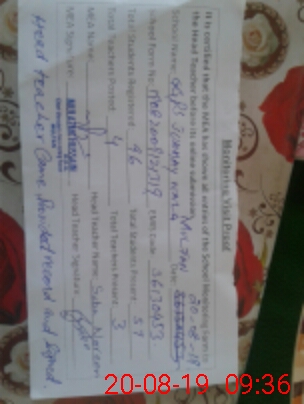 Monitoring Visit Proof
It is certified that the MEA has shown all entries of the School Monitoring Form to
the Head Teacher before its online submission.
School Name: GGPS JUMMAY WALA MULTAN Date: 20-08-19
School Form No. EMIS Code: 36130453
Total Students Registered: 96 Total Students Present: 59
Total Teachers Posted: 4 Total Teachers Present: 3
MEA Name: Head Teacher Name: Saba Noreen
MEA Signature: Head Teacher Signature:
Head teacher Came Provided record and Signed.
20-08-19 09:36